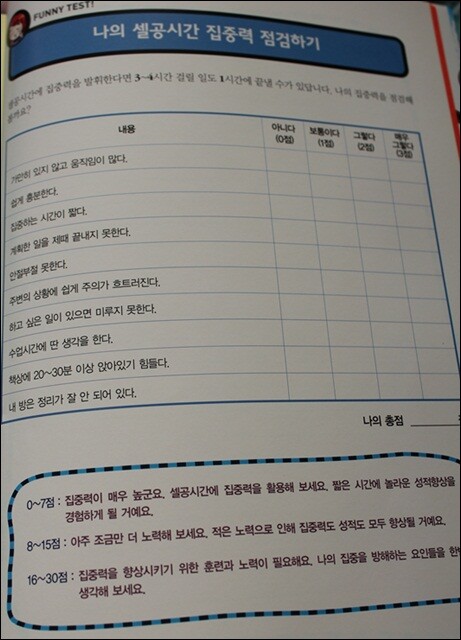 FUNNY TEST!
나의 셀공시간 집중력 점검하기
공시간에 집중력을 발휘한다면 3~4시간 걸릴 일도 1시간에 끝낼 수가 있답니다. 나의 집중력을 점검해
볼까요?
내용 아니다 (0점) 보통이다 (1점) 그렇다 (2점) 매우 그렇다 (3점)
가만히 있지 않고 움직임이 많다.
쉽게 흥분한다.
집중하는 시간이 짧다.
계획한 일을 제때 끝내지 못한다.
안절부절 못한다.
주변의 상황에 쉽게 주의가 흐트러진다.
하고 싶은 일이 있으면 미루지 못한다.
수업시간에 딴 생각을 한다.
책상에 20~30분 이상 앉아있기 힘들다.
내 방은 정리가 잘 안 되어 있다.
나의 총점
0~7점 : 집중력이 매우 높군요. 셀공시간에 집중력을 활용해 보세요. 짧은 시간에 놀라운 성적향상을
경험하게 될 거예요.
8~15점 : 아주 조금만 더 노력해 보세요. 적은 노력으로 인해 집중력도 성적도 모두 향상될 거예요.
16~30점 : 집중력을 향상시키기 위한 훈련과 노력이 필요해요. 나의 집중을 방해하는 요인들을 한번
생각해 보세요.